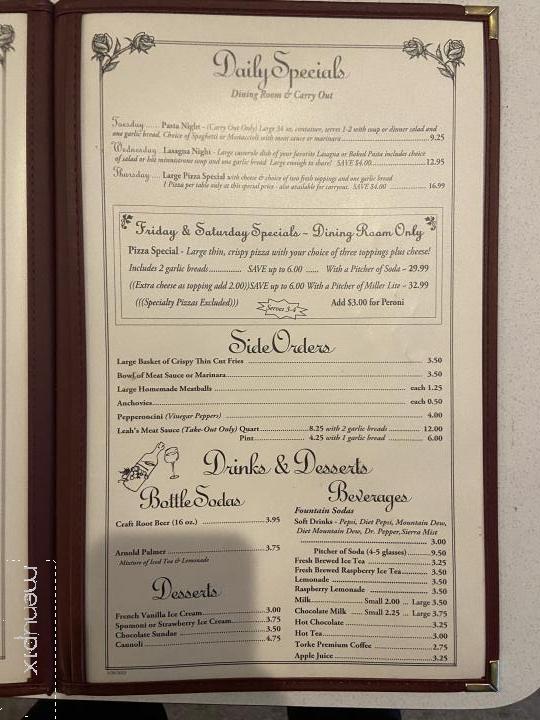 Daily Specials
Dining Room & Carry Out
Tuesday ..... Pasta Night - (Carry Out Only) Large 34 oz. container, serves 1-2 with soup or dinner salad and
one garlic bread. Choice of Spaghetti or Mostaccioli with meat sauce or marinara ..... 9.25
Wednesday .. Lasagna Night - Large casserole dish of your favorite Lasagna or Baked Pasta includes choice
of salad or hot minestrone soup and one garlic bread Large enough to share! SAVE $4.00 ..... 12.95
Thursday .... Large Pizza Special with cheese & choice of two fresh toppings and one garlic bread
1 Pizza per table only at this special price - also available for carryout. SAVE $4.00 ..... 16.99
Friday & Saturday Specials ~ Dining Room Only
Pizza Special - Large thin, crispy pizza with your choice of three toppings plus cheese!
Includes 2 garlic breads ............. SAVE up to 6.00 ...... With a Pitcher of Soda ~ 29.99
((Extra cheese as topping add 2.00)) SAVE up to 6.00 With a Pitcher of Miller Lite ~ 32.99
(((Specialty Pizzas Excluded))) Serves 3-4 Add $3.00 for Peroni
Side Orders
Large Basket of Crispy Thin Cut Fries ..... 3.50
Bowl of Meat Sauce or Marinara ..... 3.50
Large Homemade Meatballs ..... each 1.25
Anchovies ..... each 0.50
Pepperoncini (Vinegar Peppers) ..... 4.00
Leah's Meat Sauce (Take-Out Only) Quart ..... 8.25 with 2 garlic breads ..... 12.00
Pint ..... 4.25 with 1 garlic bread ..... 6.00
Drinks & Desserts
Bottle Sodas
Craft Root Beer (16 oz.) ..... 3.95
Arnold Palmer ..... 3.75
Mixture of Iced Tea & Lemonade
Desserts
French Vanilla Ice Cream ..... 3.00
Spumoni or Strawberry Ice Cream ..... 3.75
Chocolate Sundae ..... 3.50
Cannoli ..... 4.75
Beverages
Fountain Sodas
Soft Drinks - Pepsi, Diet Pepsi, Mountain Dew,
Diet Mountain Dew, Dr. Pepper, Sierra Mist
..... 3.00
Pitcher of Soda (4-5 glasses) ..... 9.50
Fresh Brewed Ice Tea ..... 3.25
Fresh Brewed Raspberry Ice Tea ..... 3.50
Lemonade ..... 3.50
Raspberry Lemonade ..... 3.50
Milk ..... Small 2.00 ... Large 3.50
Chocolate Milk ..... Small 2.25 ... Large 3.75
Hot Chocolate ..... 3.25
Hot Tea ..... 3.00
Torke Premium Coffee ..... 2.75
Apple Juice ..... 3.25
menupix